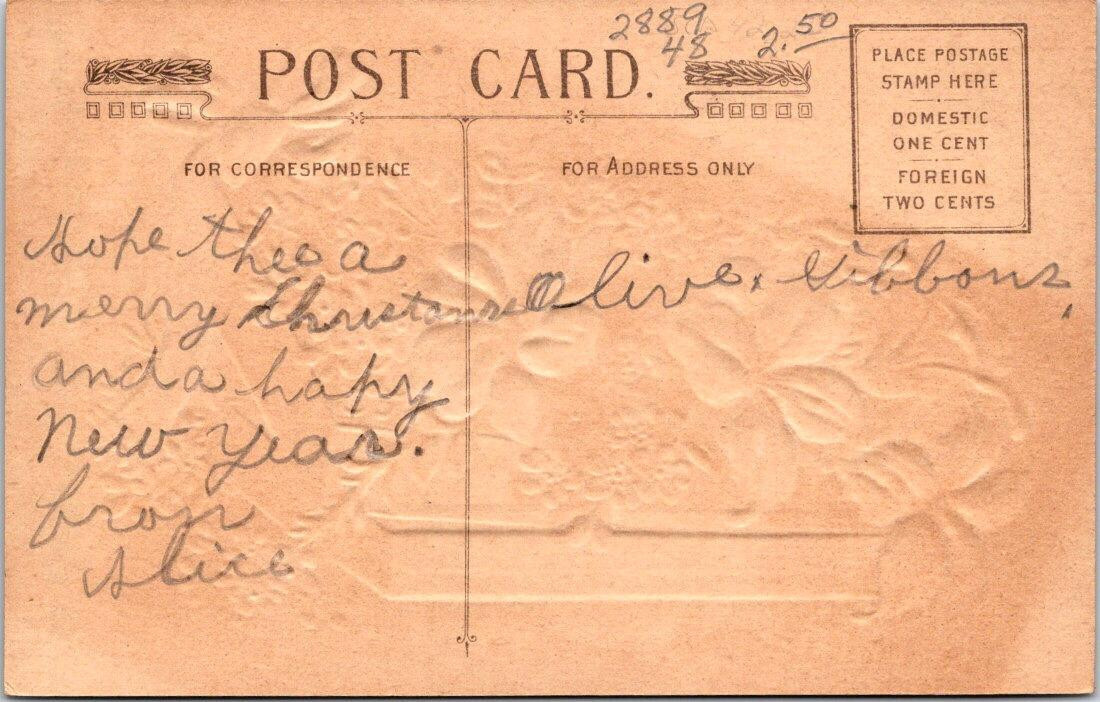 2889
48
2.50
POST CARD.
PLACE POSTAGE
STAMP HERE
DOMESTIC
ONE CENT
FOREIGN
TWO CENTS
FOR CORRESPONDENCE
FOR ADDRESS ONLY
Hope thee a
merry Christmas
and a hapy
New Year.
from
Alice
Olive. Gibbons,